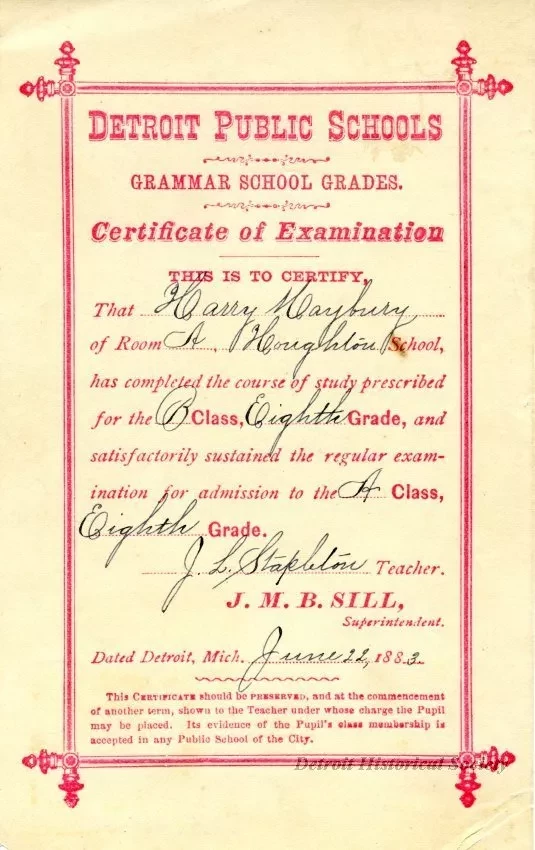 DETROIT PUBLIC SCHOOLS
GRAMMAR SCHOOL GRADES.
Certificate of Examination
THIS IS TO CERTIFY,
That Harry Maybury
of Room A, Houghton School,
has completed the course of study prescribed
for the B Class, Eighth Grade, and
satisfactorily sustained the regular exam-
ination for admission to the A Class,
Eighth Grade.
J. L. Stapleton Teacher.
J. M. B. SILL,
Superintendent.
Dated Detroit, Mich. June 22, 1883.
This CERTIFICATE should be PRESERVED, and at the commencement
of another term, shown to the Teacher under whose charge the Pupil
may be placed. Its evidence of the Pupil's class membership is
accepted in any Public School of the City.
Detroit Historical Society